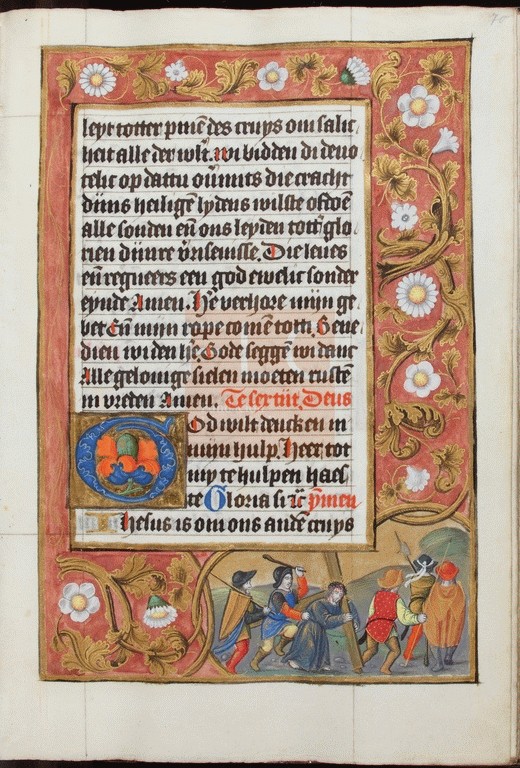 leyt totter pinē des cruys om salic
heit alle der wlt. wi bidden di devo
telic op dattu ōumits die cracht
dijns heiligē lydens wilste ofdoē
alle sonden eñ ons leyden tott glo
rien dijnre v̄risenisse. Die leves
eñ regneers een god ewelic sonder
eynde Amen. He verhore mijn ge
bet Eñ mijn rope comē totti. Bene
dien wi den hē. Gode seggē wi danc
Alle gelovige sielen moeten rustē
in vreden Amen. Te sexttijt. Deus
God wilt dencken in
mijn hulp. Heer tot
my te hulpen haes
te Gloria si ic ymen
Ihesus is om ons andē cruys